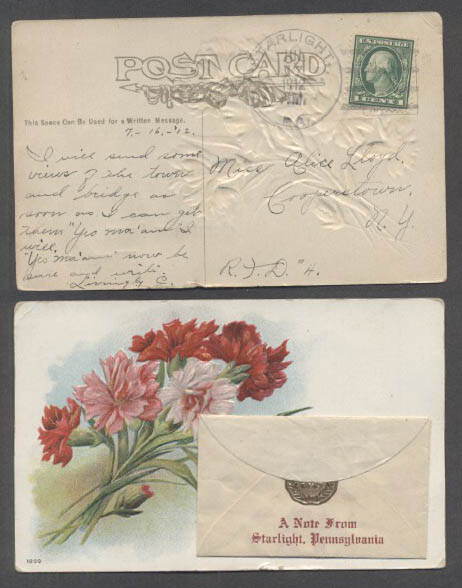 STARLIGHT,
JUL
1912
PA.
U.S. POSTAGE
1 CENT 1
POST CARD
This Space Can Be Used for a Written Message.
7-16-'12.
I will send some
views of the town
and bridge as
soon as I can get
them "Yes ma'am" I
will.
"Yes ma'am" now be
sure and write.
Miss Alice Lloyd,
Cooperstown,
N.Y.
R.F.D. "4.
A Note From
Starlight, Pennsylvania
1020